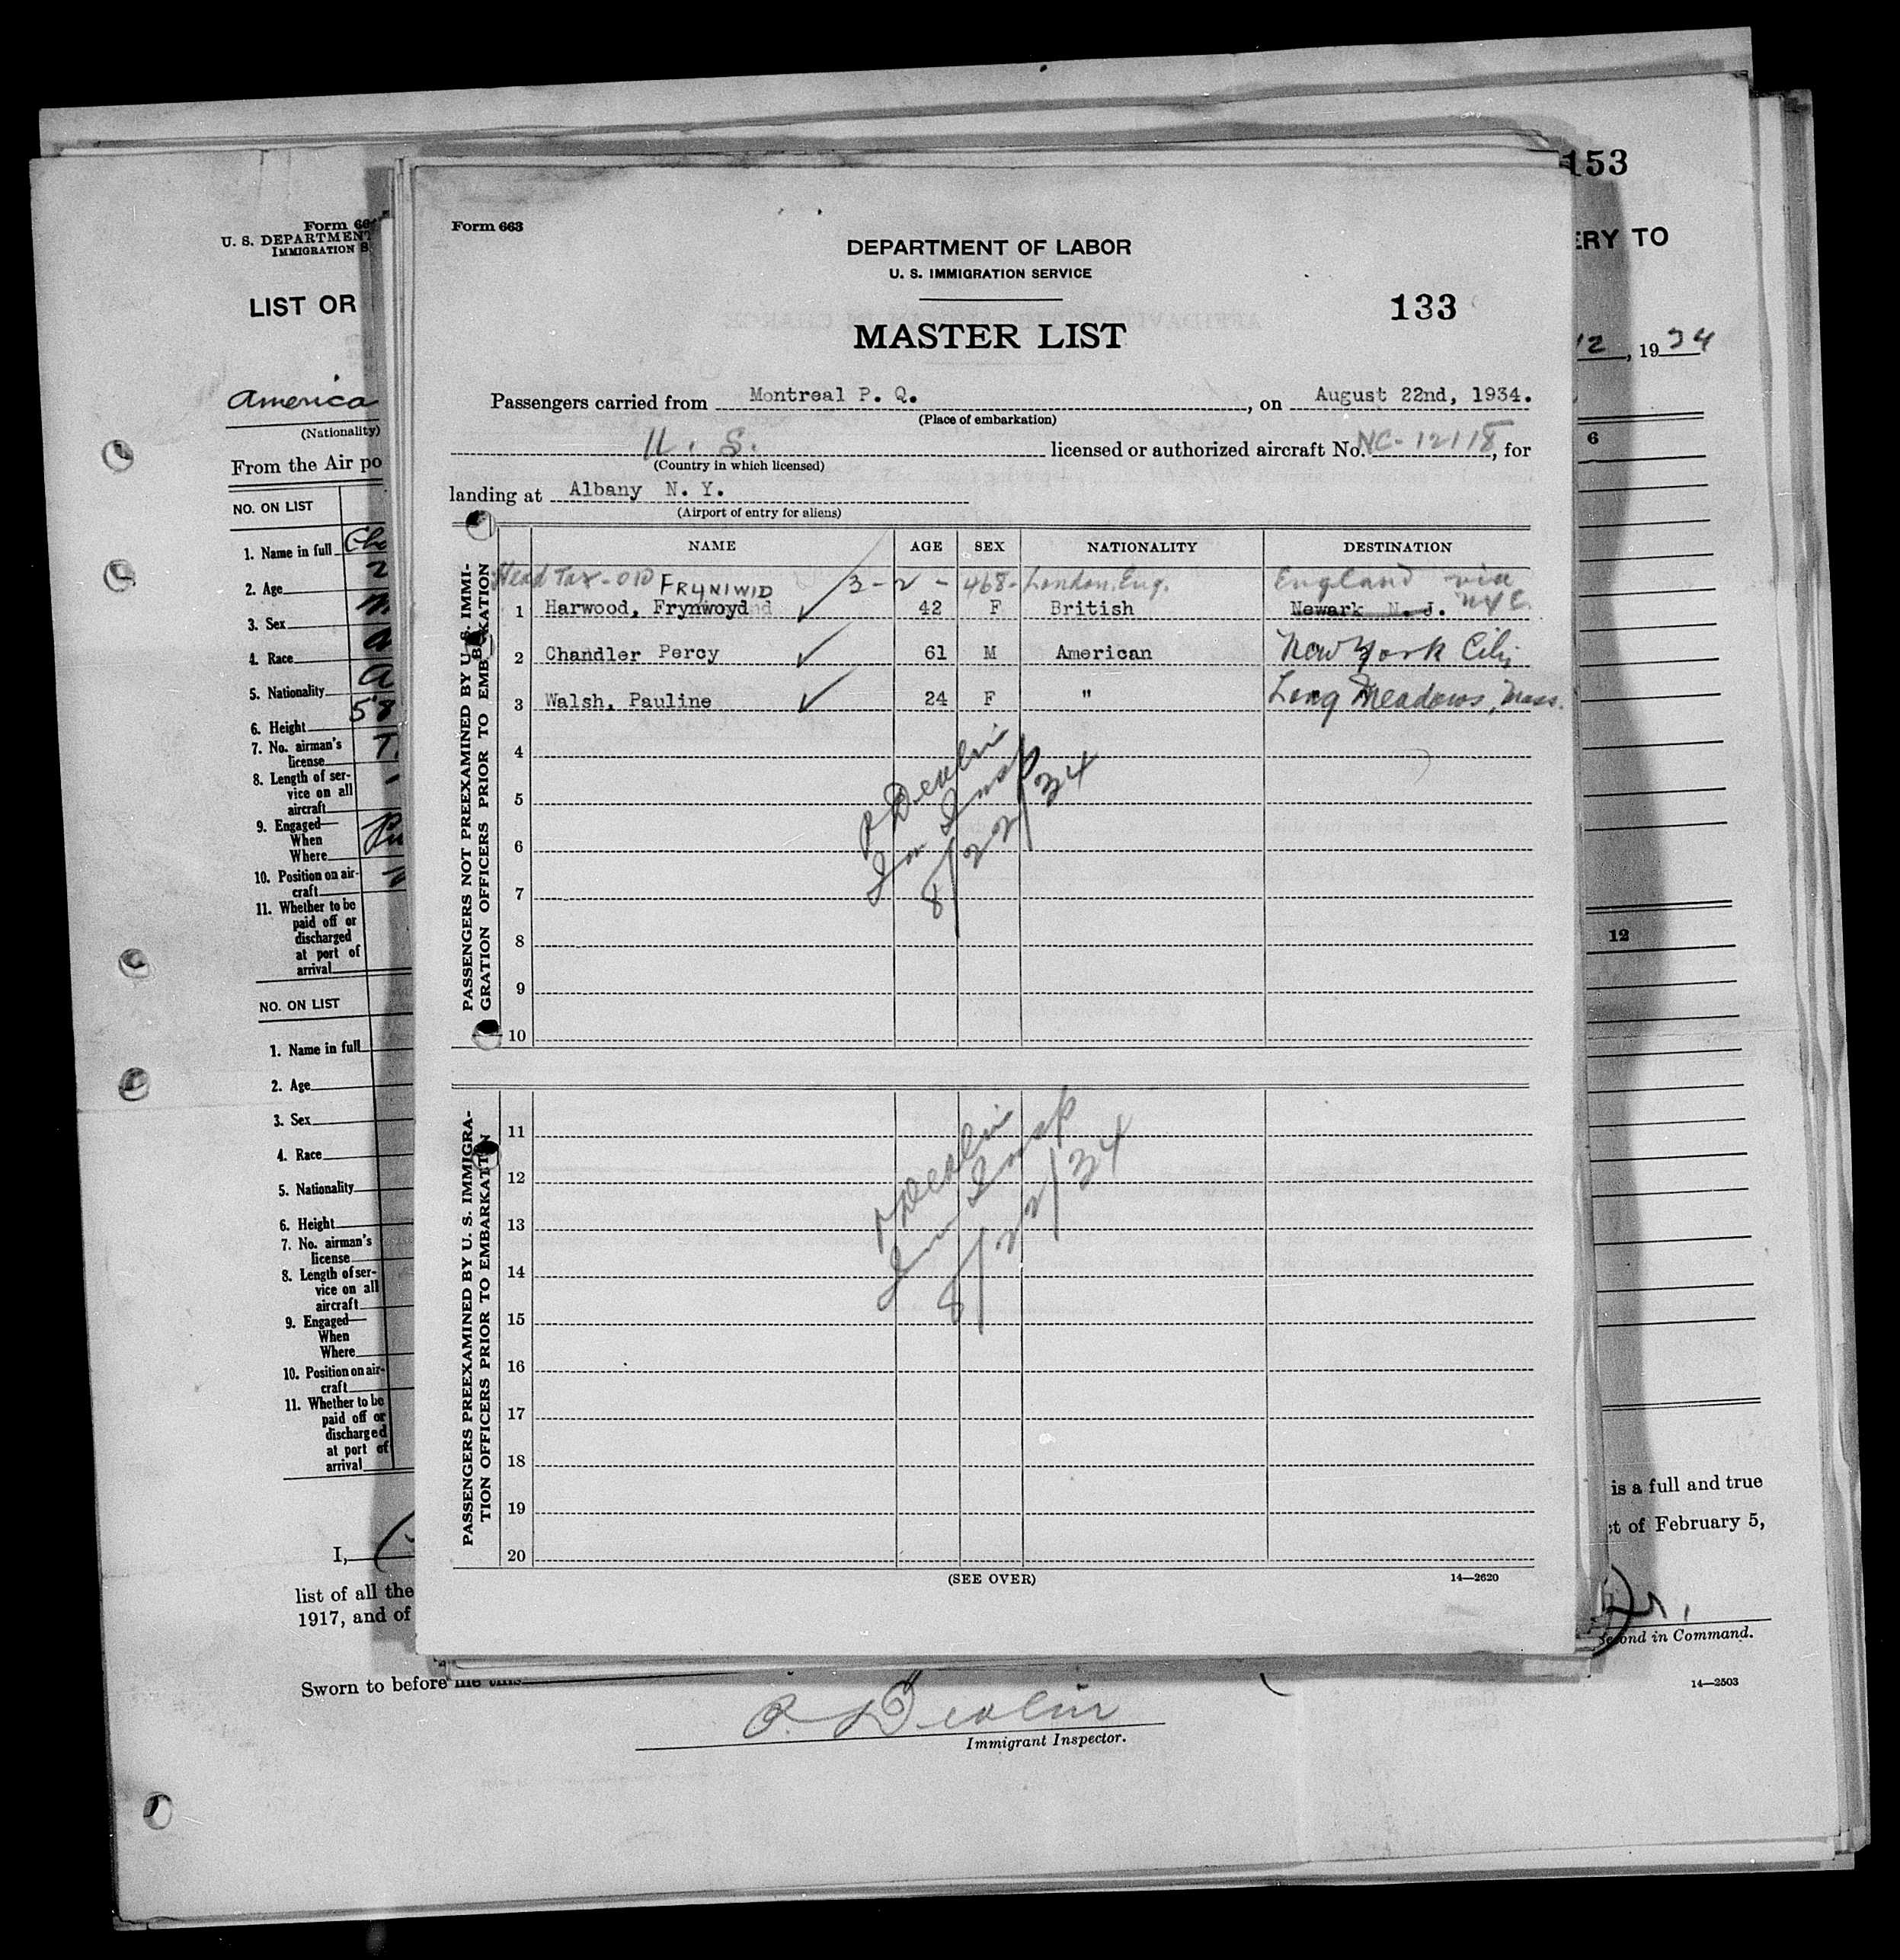 153
ERY TO
12, 1934
6
12
is a full and true
ct of February 5,
Second in Command.
14—2503
Form 66
U. S. DEPARTMENT
IMMIGRATION S
LIST OR
America
(Nationality)
From the Air po
NO. ON LIST
1. Name in full
2. Age
3. Sex
4. Race
5. Nationality
6. Height
7. No. airman's
license
8. Length of ser-
vice on all
aircraft
9. Engaged—
When
Where
10. Position on air-
craft
11. Whether to be
paid off or
discharged
at port of
arrival
NO. ON LIST
1. Name in full
2. Age
3. Sex
4. Race
5. Nationality
6. Height
7. No. airman's
license
8. Length of ser-
vice on all
aircraft
9. Engaged—
When
Where
10. Position on air-
craft
11. Whether to be
paid off or
discharged
at port of
arrival
I,
list of all the
1917, and of
Sworn to before me this
P. Devlin
Immigrant Inspector.
Form 663
DEPARTMENT OF LABOR
U. S. IMMIGRATION SERVICE
133
MASTER LIST
Passengers carried from Montreal P. Q., on August 22nd, 1934.
(Place of embarkation)
U. S. licensed or authorized aircraft No. NC-12118, for
(Country in which licensed)
landing at Albany N. Y.
(Airport of entry for aliens)
PASSENGERS NOT PREEXAMINED BY U. S. IMMI-
GRATION OFFICERS PRIOR TO EMBARKATION
NAME AGE SEX NATIONALITY DESTINATION
Head Tax-OID FRYNIWID 3-2-468-London.Eng. England via
1 Harwood, Frynwoyd 42 F British Newark N. J. NYC.
2 Chandler Percy 61 M American New York City
3 Walsh, Pauline 24 F " Long Meadows, Mass.
4
5
6
7
8
9
10
P Devlin
Im Insp
8/22/34
PASSENGERS PREEXAMINED BY U. S. IMMIGRA-
TION OFFICERS PRIOR TO EMBARKATION
11
12
13
14
15
16
17
18
19
20
P Devlin
Im Insp
8/22/34
(SEE OVER)
14—2620